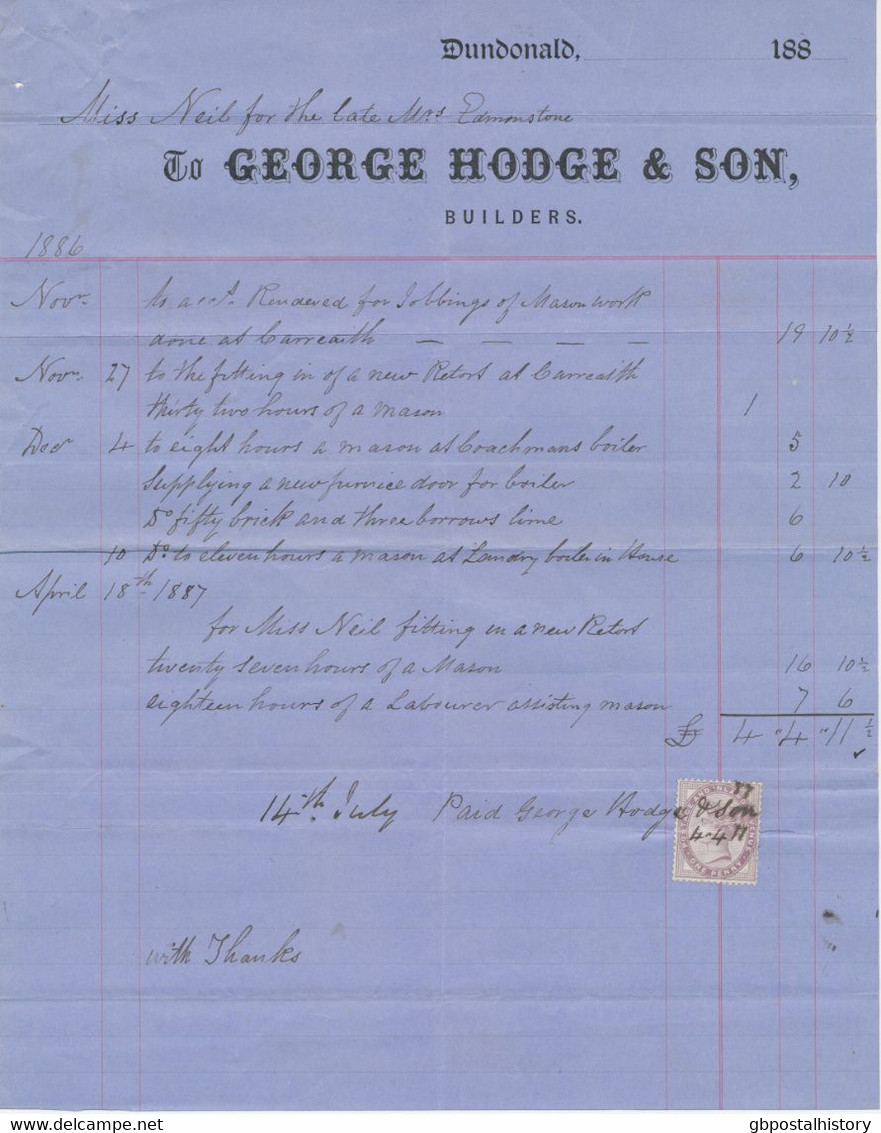 Dundonald, 188
Miss Neil for the late Mrs Edmonstone
To GEORGE HODGE & SON,
BUILDERS.
1886
Novr. to acct. Rendered for Jobbings of Mason work
done at Carreaith — — — — 19 10½
Novr. 27 to the fitting in of a new Retort at Carreaith
thirty two hours of a mason 1
Decr 4 to eight hours a mason at Coachmans boiler 5
Supplying a new furnice door for boiler 2 10
Do fifty brick and three borrows lime 6
10 Do. to eleven hours a mason at Landry boiler in House 6 10½
April 18th 1887
for Miss Neil fitting in a new Retort
twenty seven hours of a Mason 16 10½
eighteen hours of a Labourer assisting mason 7 6
£ 4 " 4 " 11½
14th July Paid George Hodge & Son
4-4-11
ONE PENNY
with Thanks
gbpostalhistory